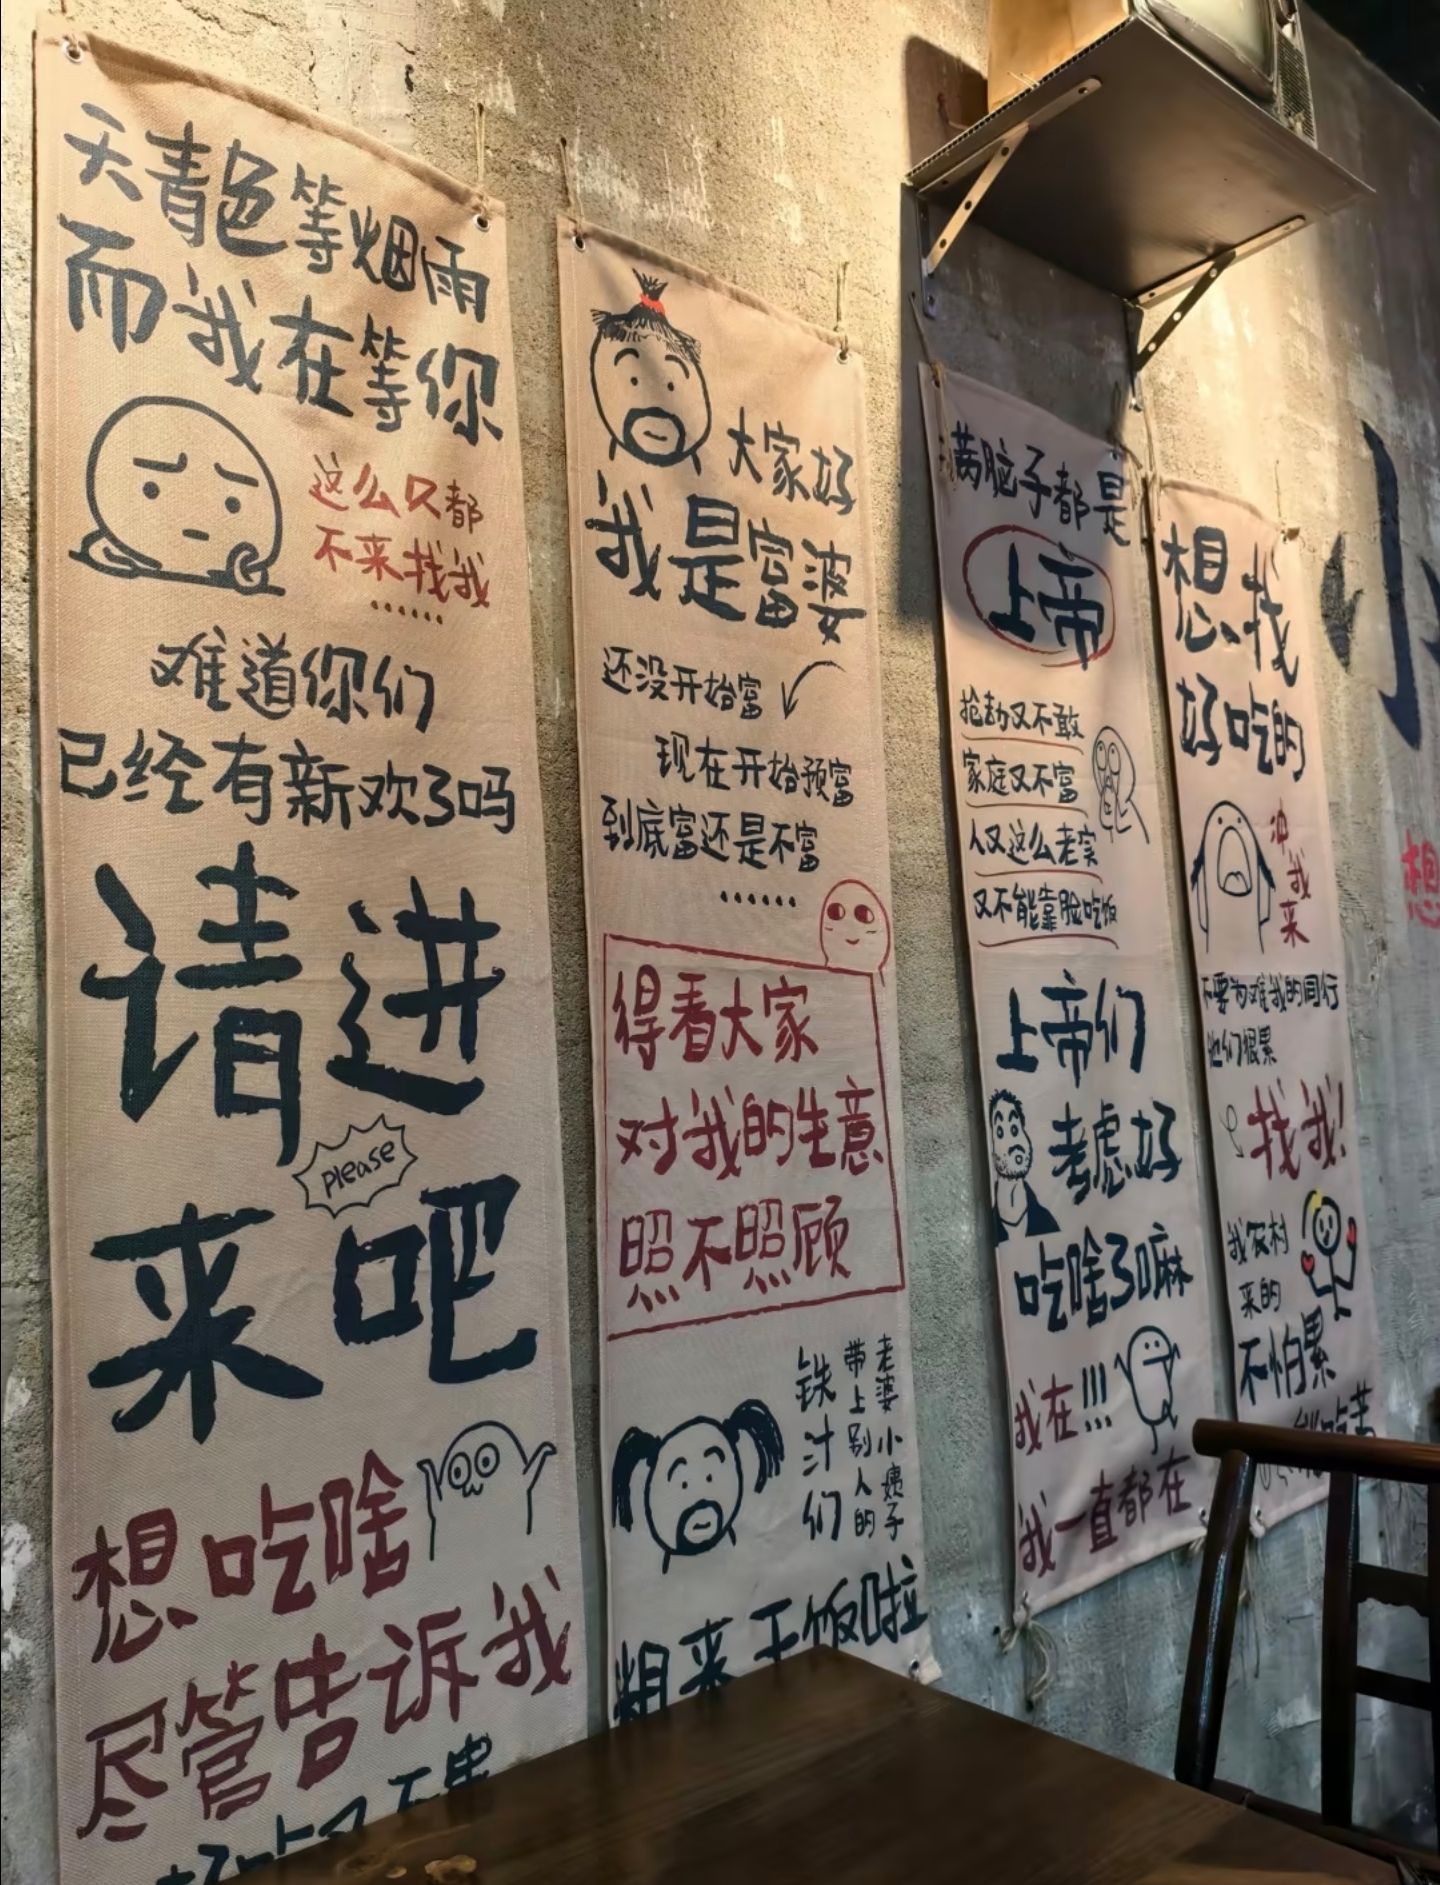 天青色等烟雨
而我在等你
这么久都
不来找我
......
难道你们
已经有新欢了吗
请进
please
来吧
想吃啥
尽管告诉我
大家好
我是富婆
还没开始富
现在开始预富
到底富还是不富
......
得看大家
对我的生意
照不照顾
铁汁们
带上别人的
老婆小姨子
粗来干饭啦
满脑子都是
上帝
抢劫又不敢
家庭又不富
人又这么老实
又不能靠脸吃饭
上帝们
考虑好
吃啥了嘛
我在!!!
我一直都在
想找
好吃的
冲我来
不要为难我的同行
他们很累
找我!
我农村
来的
不怕累
小
想